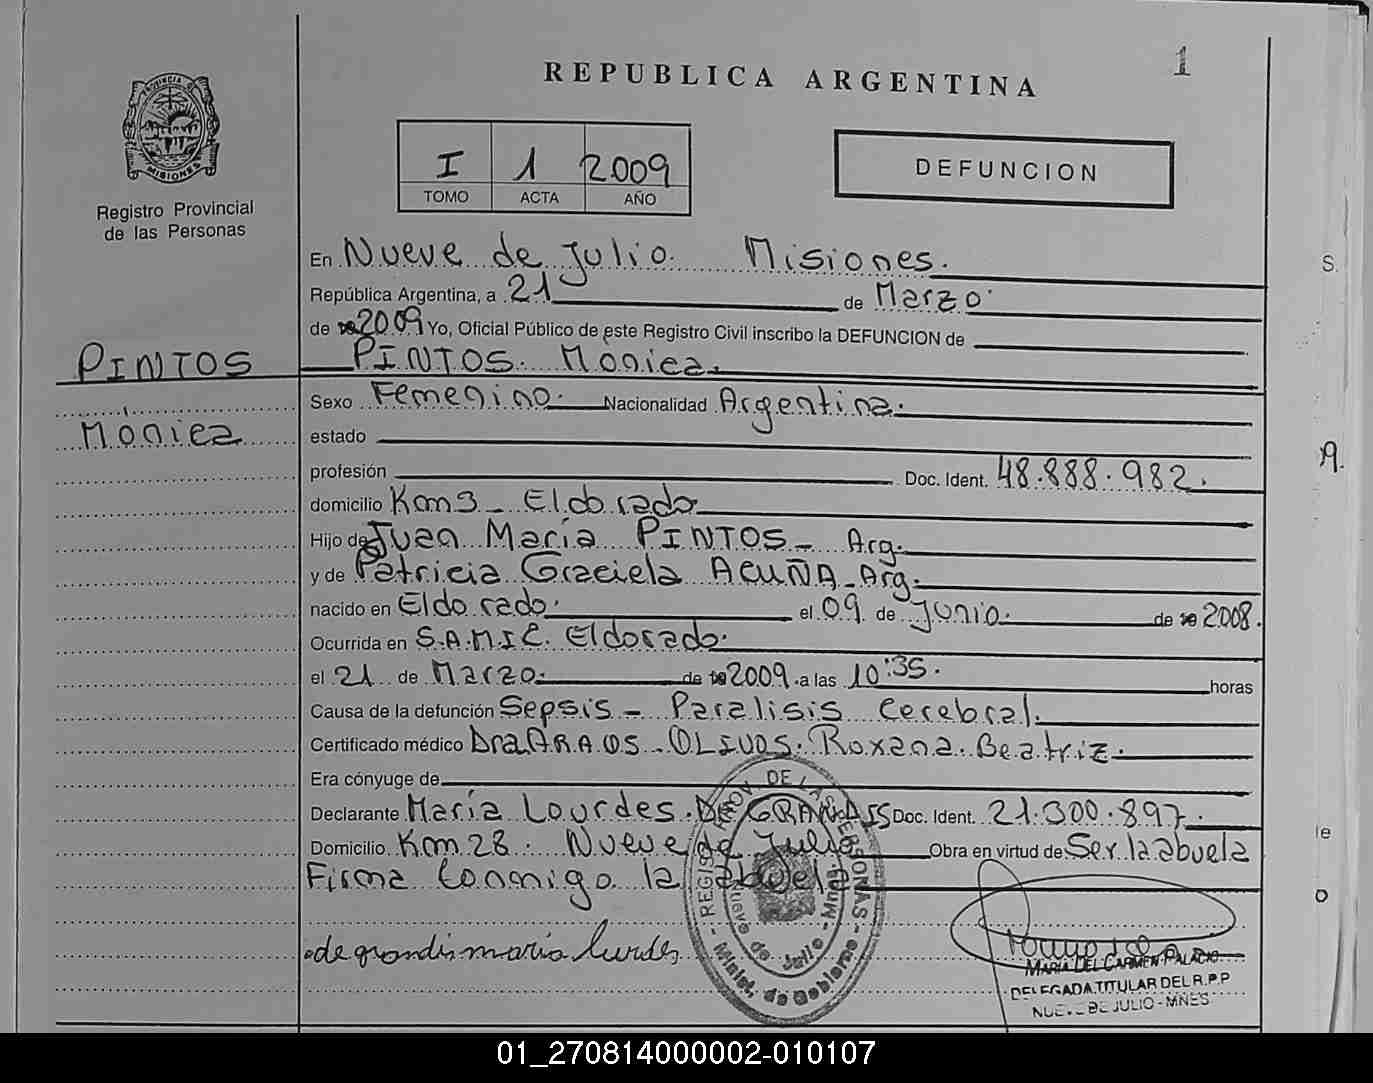 1
REPUBLICA ARGENTINA
PROVINCIA DE
MISIONES
Registro Provincial
de las Personas
I 1 2009
TOMO ACTA AÑO
DEFUNCION
En Nueve de Julio. Misiones.
República Argentina, a 21 de Marzo.
de 2009 Yo, Oficial Público de este Registro Civil inscribo la DEFUNCION de
PINTOS
Mónica
PINTOS. Mónica.
Sexo Femenino. Nacionalidad Argentina.
estado
profesión Doc. Ident. 48.888.982.
domicilio Km 3 - Eldorado
Hijo de Juan María PINTOS - Arg.
y de Patricia Graciela ACUÑA - Arg.
nacido en Eldorado. el 09 de Junio. de 2008.
Ocurrida en S.A.M.I.C. Eldorado.
el 21 de Marzo. de 2009 a las 10:35. horas
Causa de la defunción Sepsis - Paralisis Cerebral.
Certificado médico Dra ARAOS - OLIVOS. Roxana. Beatriz.
Era cónyuge de
Declarante María Lourdes. DE GRANDIS Doc. Ident. 21.300.897.
Domicilio Km 28. Nueve de Julio Obra en virtud de Ser la abuela
Firma Conmigo la abuela
de grandis maría lurdes
REGISTRO PROV. DE LAS PERSONAS
Nueve de Julio - Mnes.
Minist. de Gobierno
MARIA DEL CARMEN PALACIO
DELEGADA TITULAR DEL R.P.P
NUEVE DE JULIO - MNES
S.
A.
le
o
01_270814000002-010107